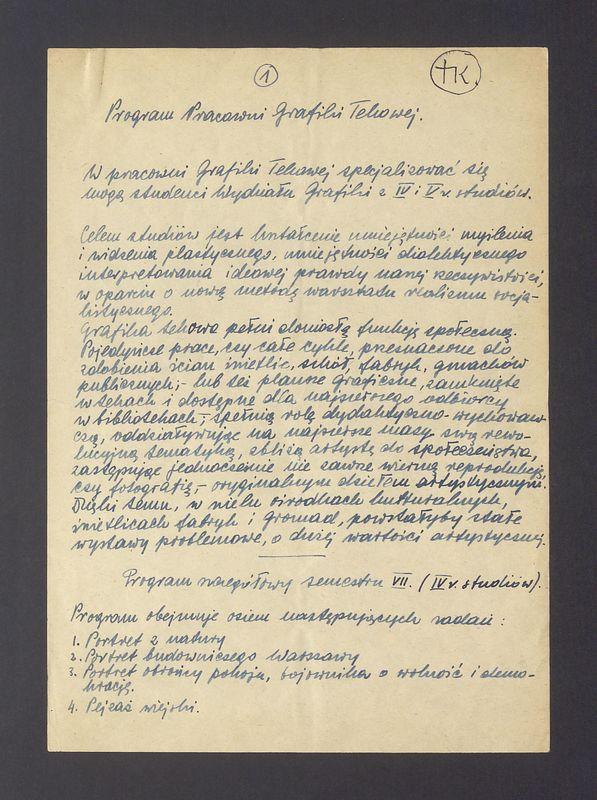 1
TK.
Program Pracowni Grafiki Tekowej.
W pracowni Grafiki Tekowej specjalizować się
mogą studenci Wydziału Grafiki z IV i V r. studiów.
Celem studiów jest kształcenie umiejętności myślenia
i widzenia plastycznego, umiejętności dialektycznego
interpretowania ideowej prawdy naszej rzeczywistości,
w oparciu o nową metodę warsztatu realizmu socja-
listycznego.
Grafika tekowa pełni doniosłą funkcję społeczną.
Pojedyńcze prace, czy całe cykle, przeznaczone do
zdobienia ścian świetlic, szkół, fabryk, gmachów
publicznych; - lub też plansze graficzne, zamknięte
w tekach i dostępne dla najszerszego odbiorcy
w bibliotekach, - spełnią rolę dydaktyczno-wychowaw-
czą, oddziaływując na najszersze masy swą rewo-
lucyjną tematyką, zbliżą artystę do społeczeństwa,
zastępując jednocześnie nie zawsze wierną reprodukcję,
czy fotografię, - oryginalnym dziełem artystycznym.
Dzięki temu, w wielu ośrodkach kulturalnych,
świetlicach fabryk i gromad, powstałyby stałe
wystawy problemowe, o dużej wartości artystycznej.
Program szczegółowy semestru VII. (IV r. studiów).
Program obejmuje osiem następujących zadań:
1. Portret z natury
2. Portret budowniczego Warszawy
3. Portret obrońcy pokoju, bojownika o wolność i demo-
krację.
4. Pejzaż wiejski.